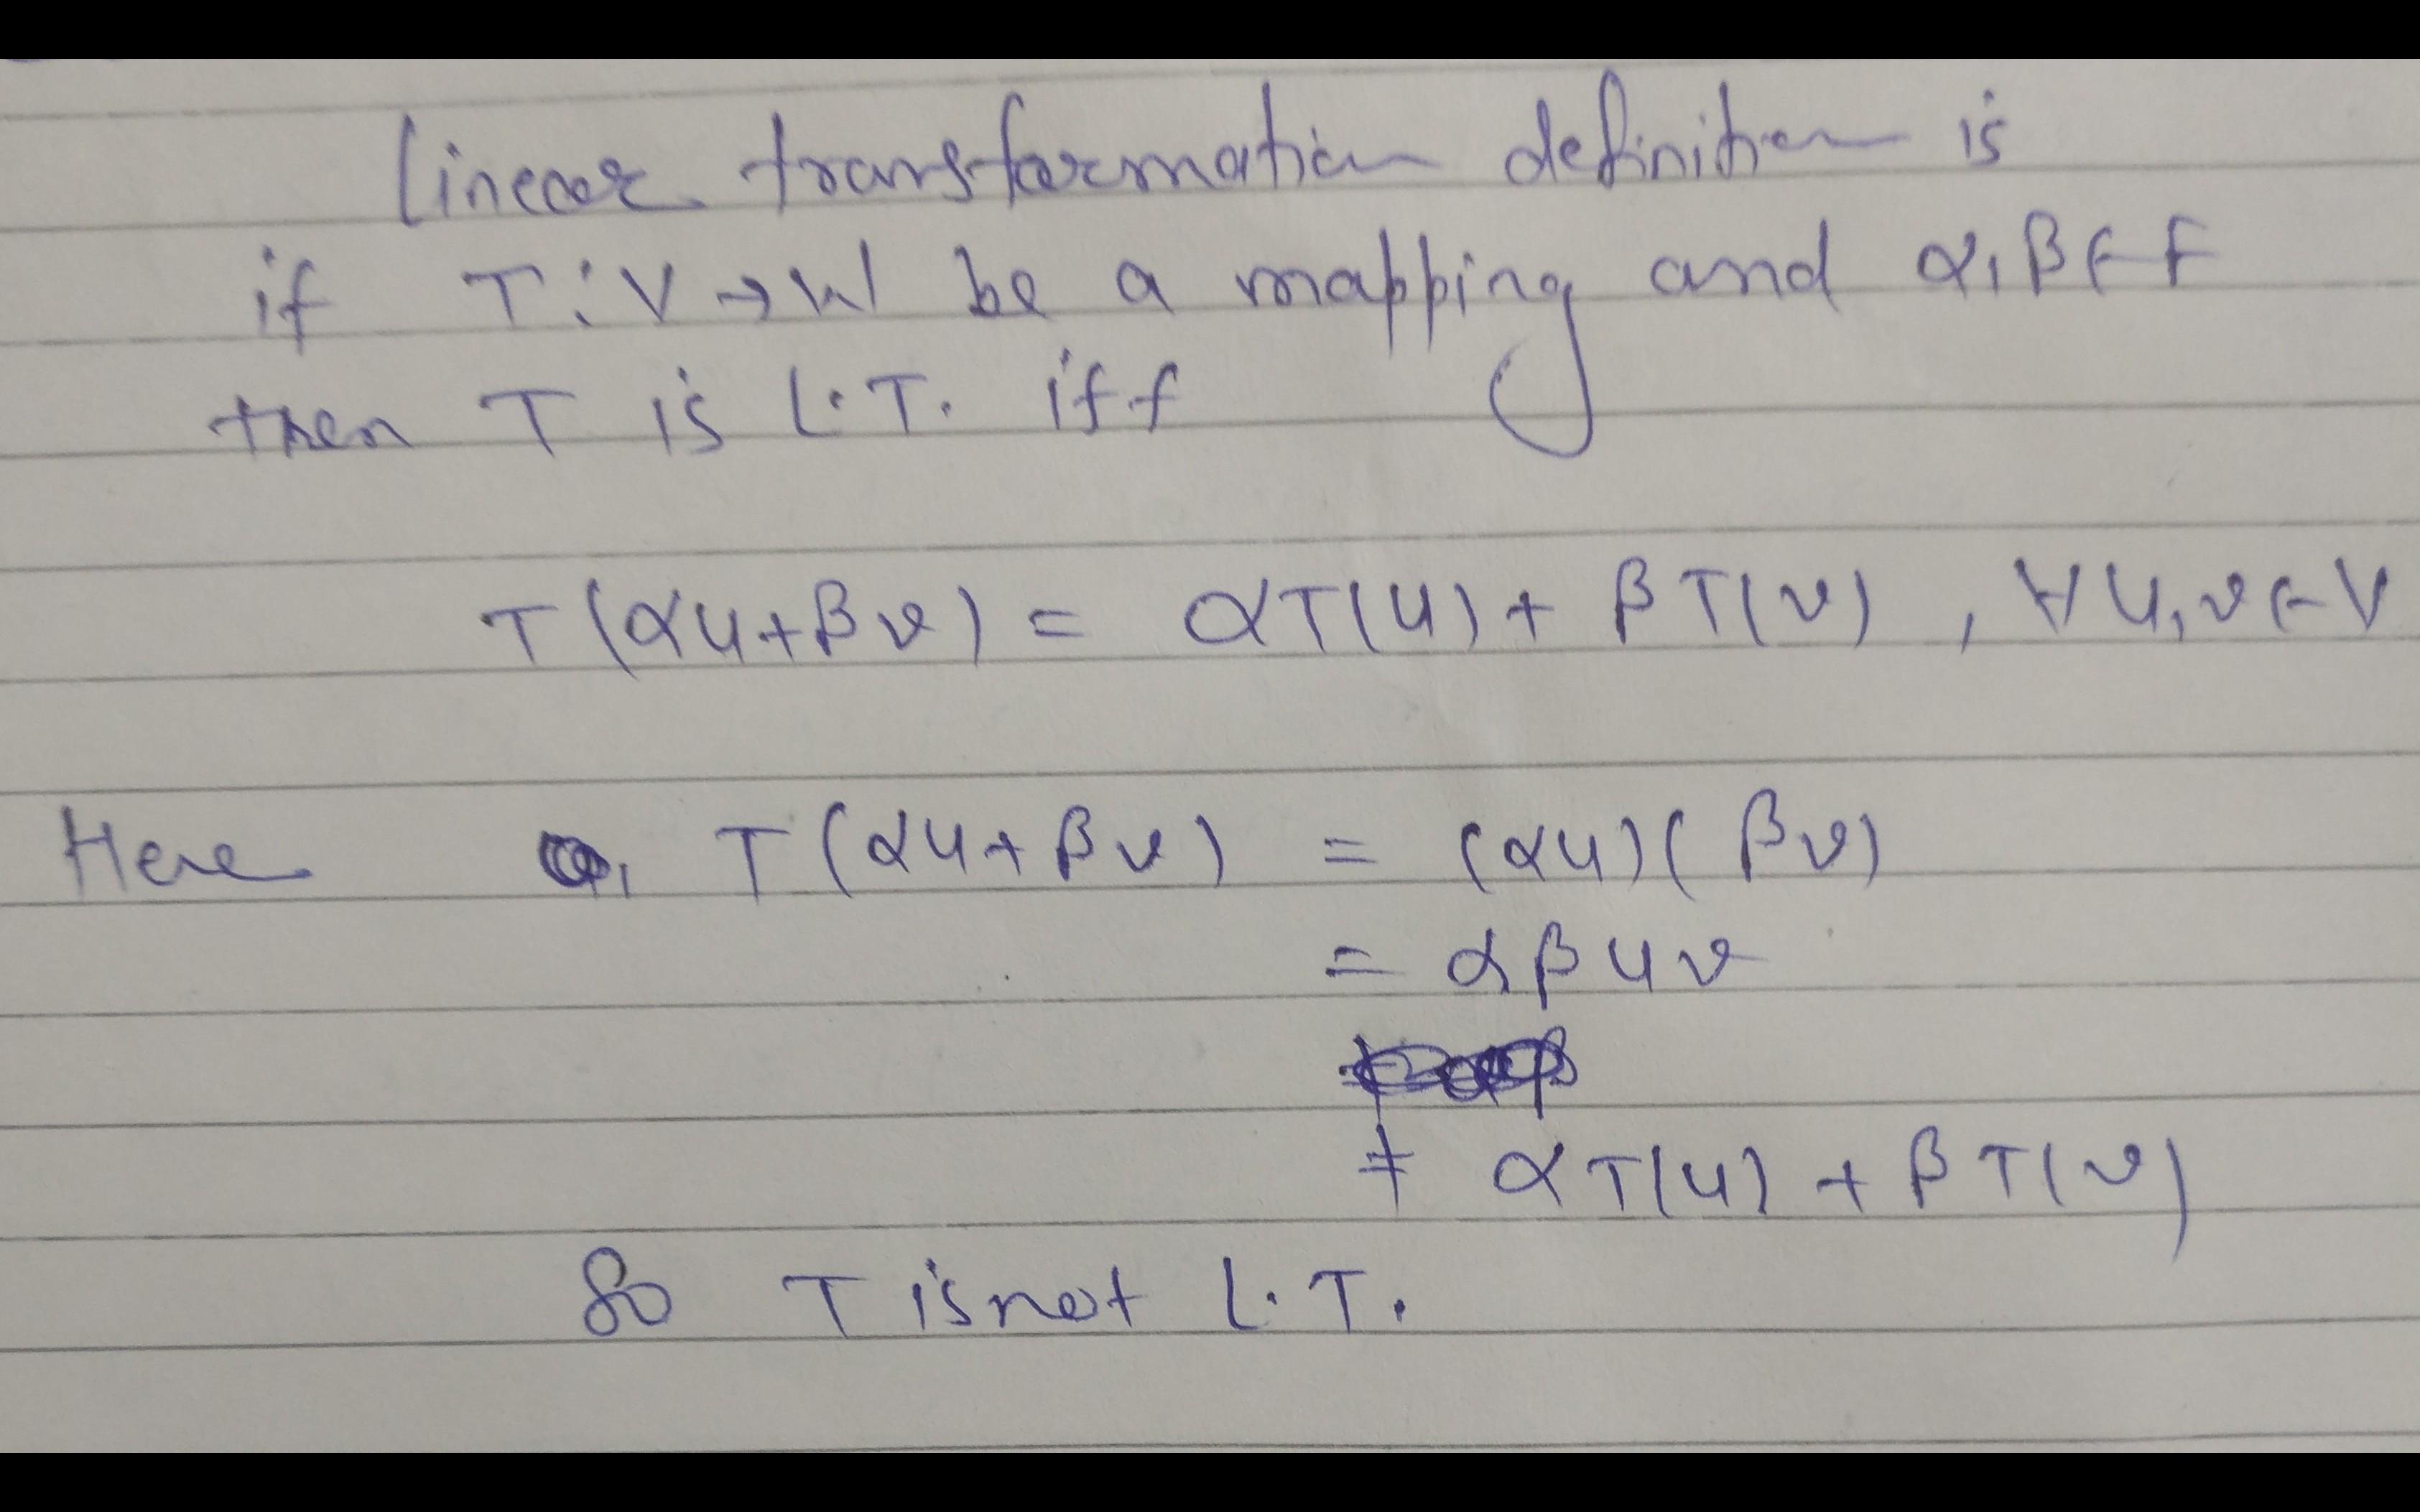 linear transformation definition is
if T : V → W be a mapping and α, β ∈ F
then T is L.T. iff
T(αu+βv) = αT(u) + βT(v) , ∀ u,v ∈ V
Here T(αu+βv) = (αu)(βv)
= αβuv
≠ αT(u) + βT(v)
So T is not L.T.